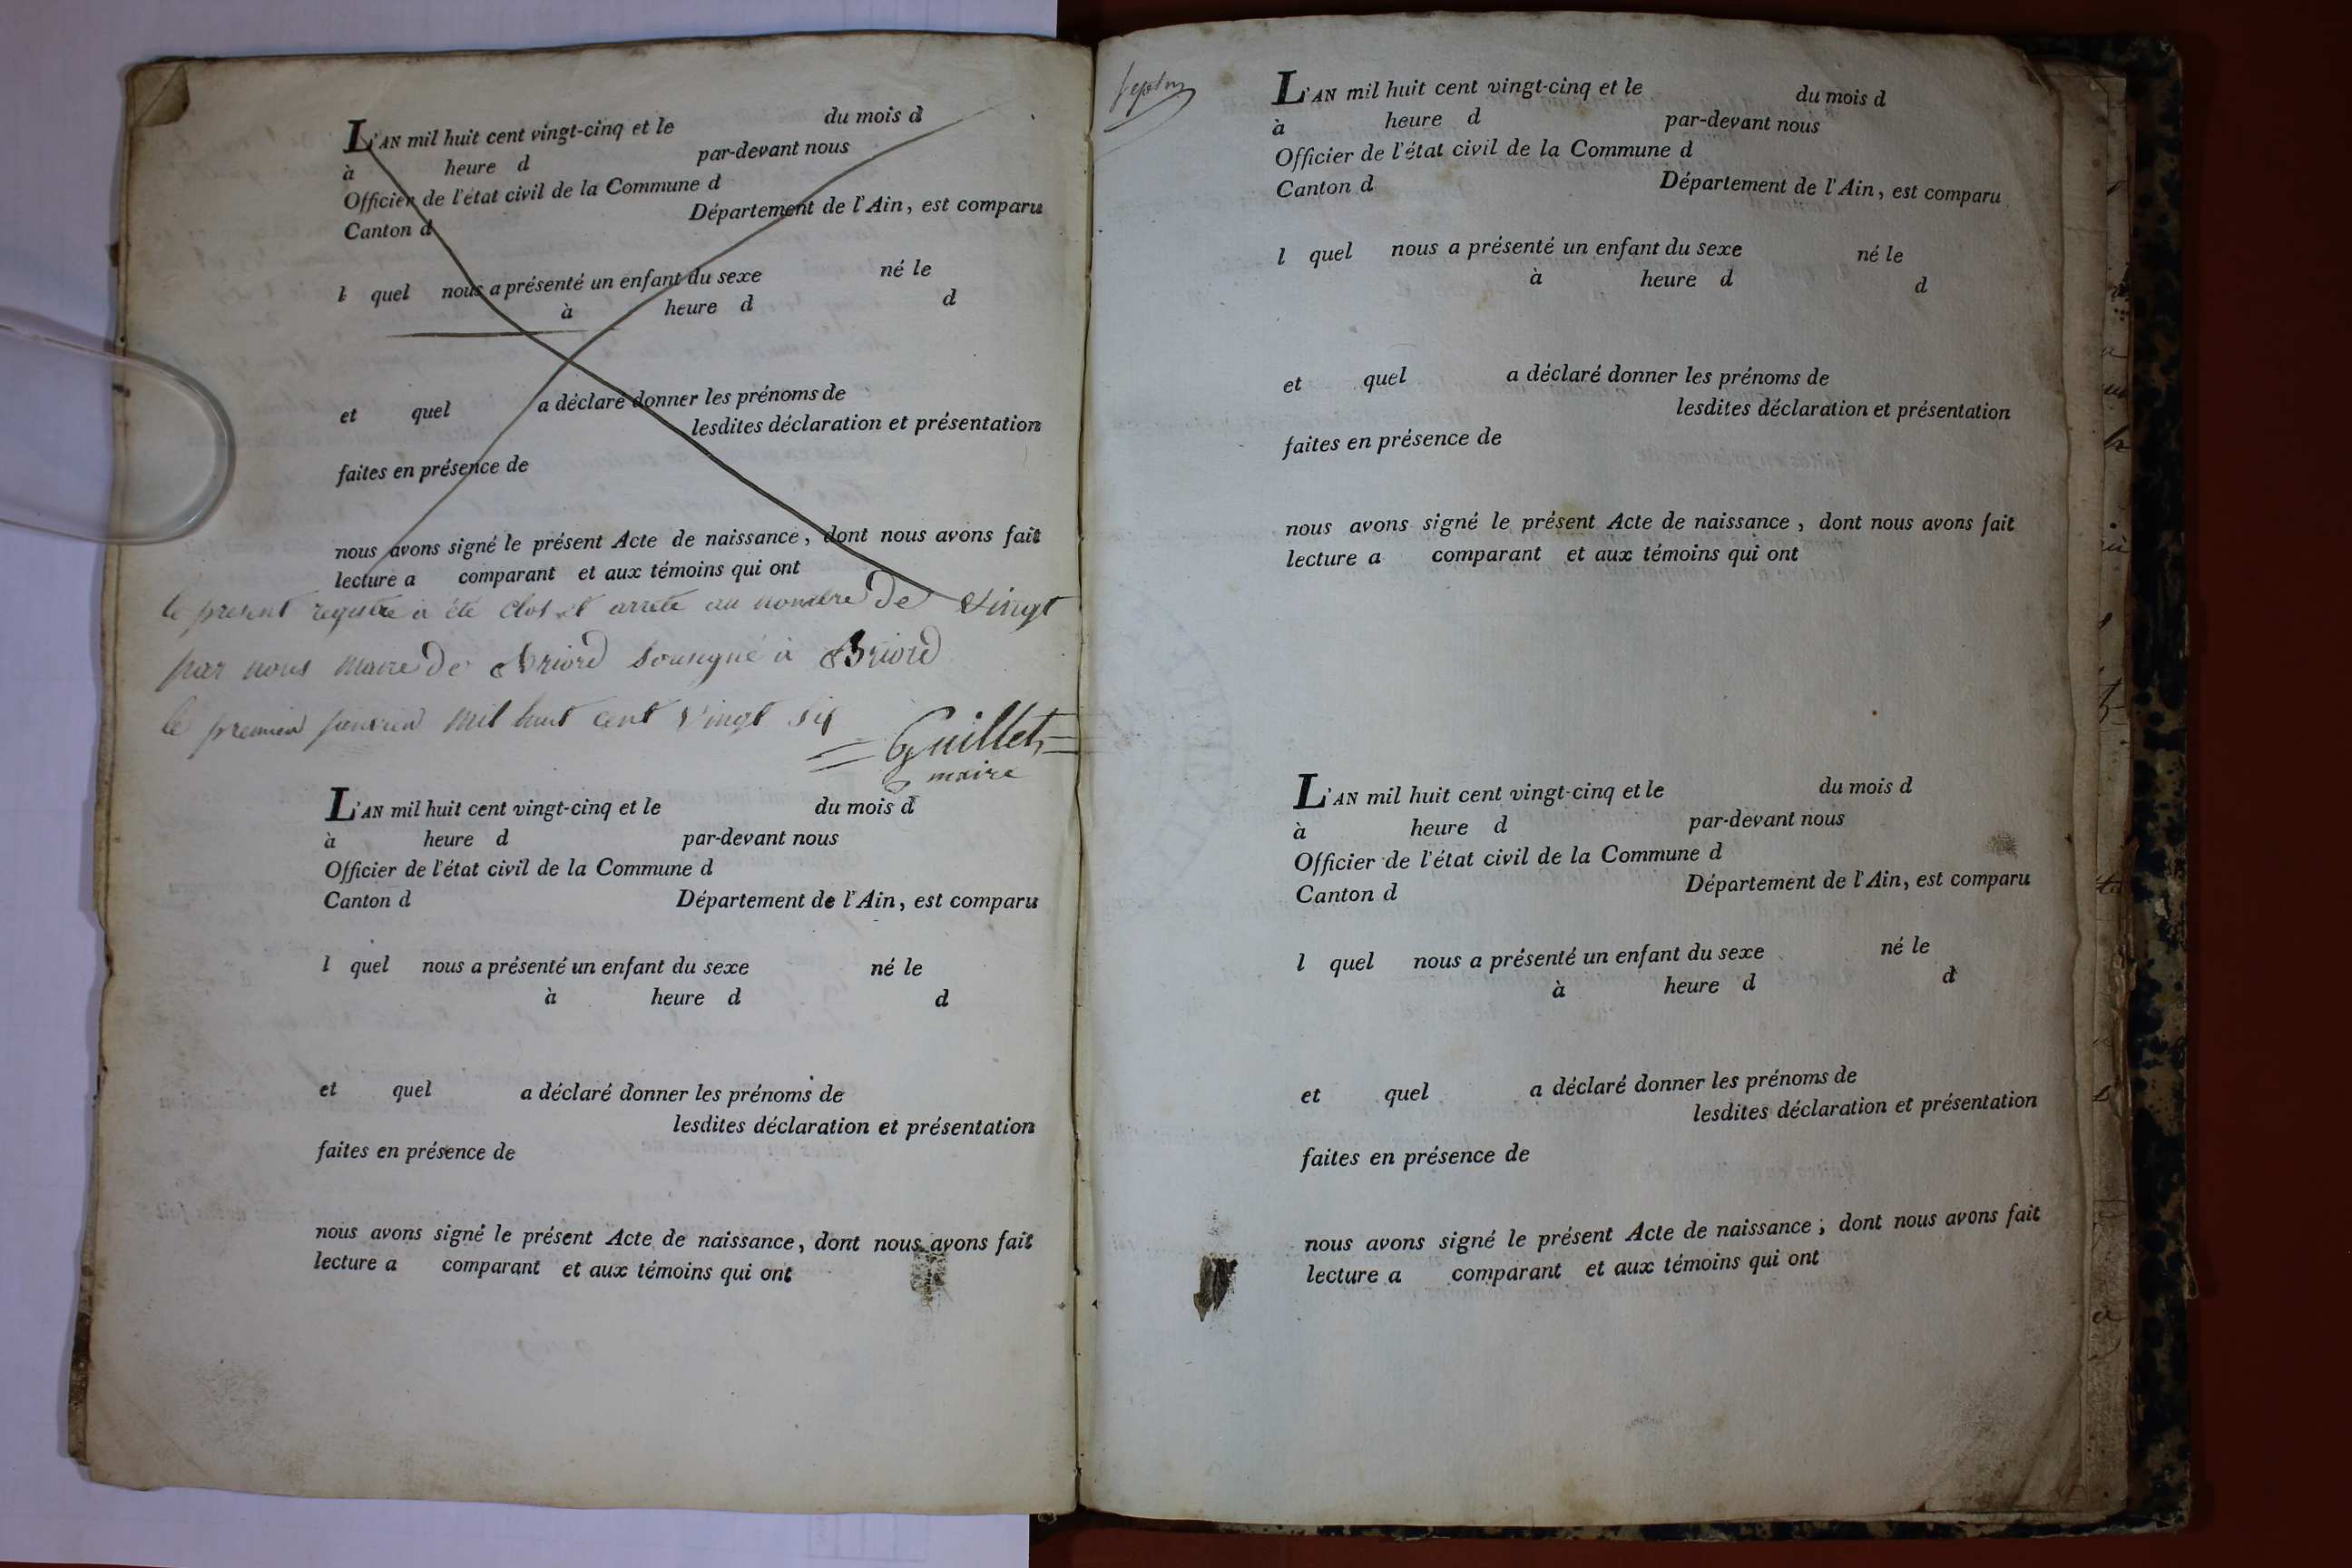 L'AN mil huit cent vingt-cinq et le du mois d
à heure d par-devant nous
Officier de l'état civil de la Commune d
Canton d Département de l'Ain, est comparu
l quel nous a présenté un enfant du sexe né le
à heure d d
et quel a déclaré donner les prénoms de
lesdites déclaration et présentation
faites en présence de
nous avons signé le présent Acte de naissance, dont nous avons fait
lecture a comparant et aux témoins qui ont
le present registre a été clos et arreté au nombre de vingt
par nous maire de Briord sousigné à Briord
le premier janvier mil huit cent vingt six
Guillet
maire
L'AN mil huit cent vingt-cinq et le du mois d
à heure d par-devant nous
Officier de l'état civil de la Commune d
Canton d Département de l'Ain, est comparu
l quel nous a présenté un enfant du sexe né le
à heure d d
et quel a déclaré donner les prénoms de
lesdites déclaration et présentation
faites en présence de
nous avons signé le présent Acte de naissance, dont nous avons fait
lecture a comparant et aux témoins qui ont
L'AN mil huit cent vingt-cinq et le du mois d
à heure d par-devant nous
Officier de l'état civil de la Commune d
Canton d Département de l'Ain, est comparu
l quel nous a présenté un enfant du sexe né le
à heure d d
et quel a déclaré donner les prénoms de
lesdites déclaration et présentation
faites en présence de
nous avons signé le présent Acte de naissance, dont nous avons fait
lecture a comparant et aux témoins qui ont
L'AN mil huit cent vingt-cinq et le du mois d
à heure d par-devant nous
Officier de l'état civil de la Commune d
Canton d Département de l'Ain, est comparu
l quel nous a présenté un enfant du sexe né le
à heure d d
et quel a déclaré donner les prénoms de
lesdites déclaration et présentation
faites en présence de
nous avons signé le présent Acte de naissance; dont nous avons fait
lecture a comparant et aux témoins qui ont